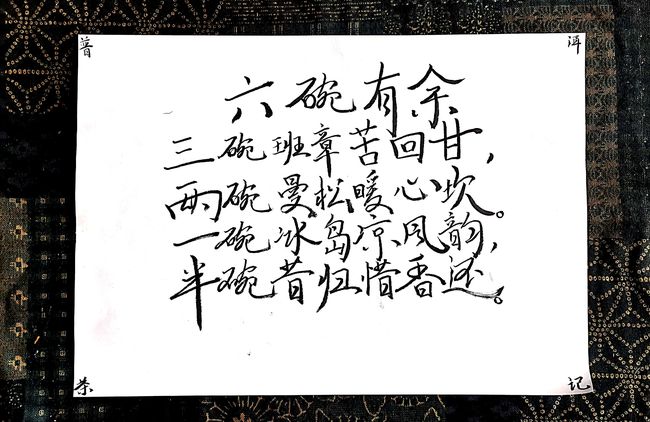 普 洱
六碗有余
三碗班章苦回甘，
两碗曼松暖心坎。
一碗冰岛凉风韵，
半碗昔归惜香还。
茶 记